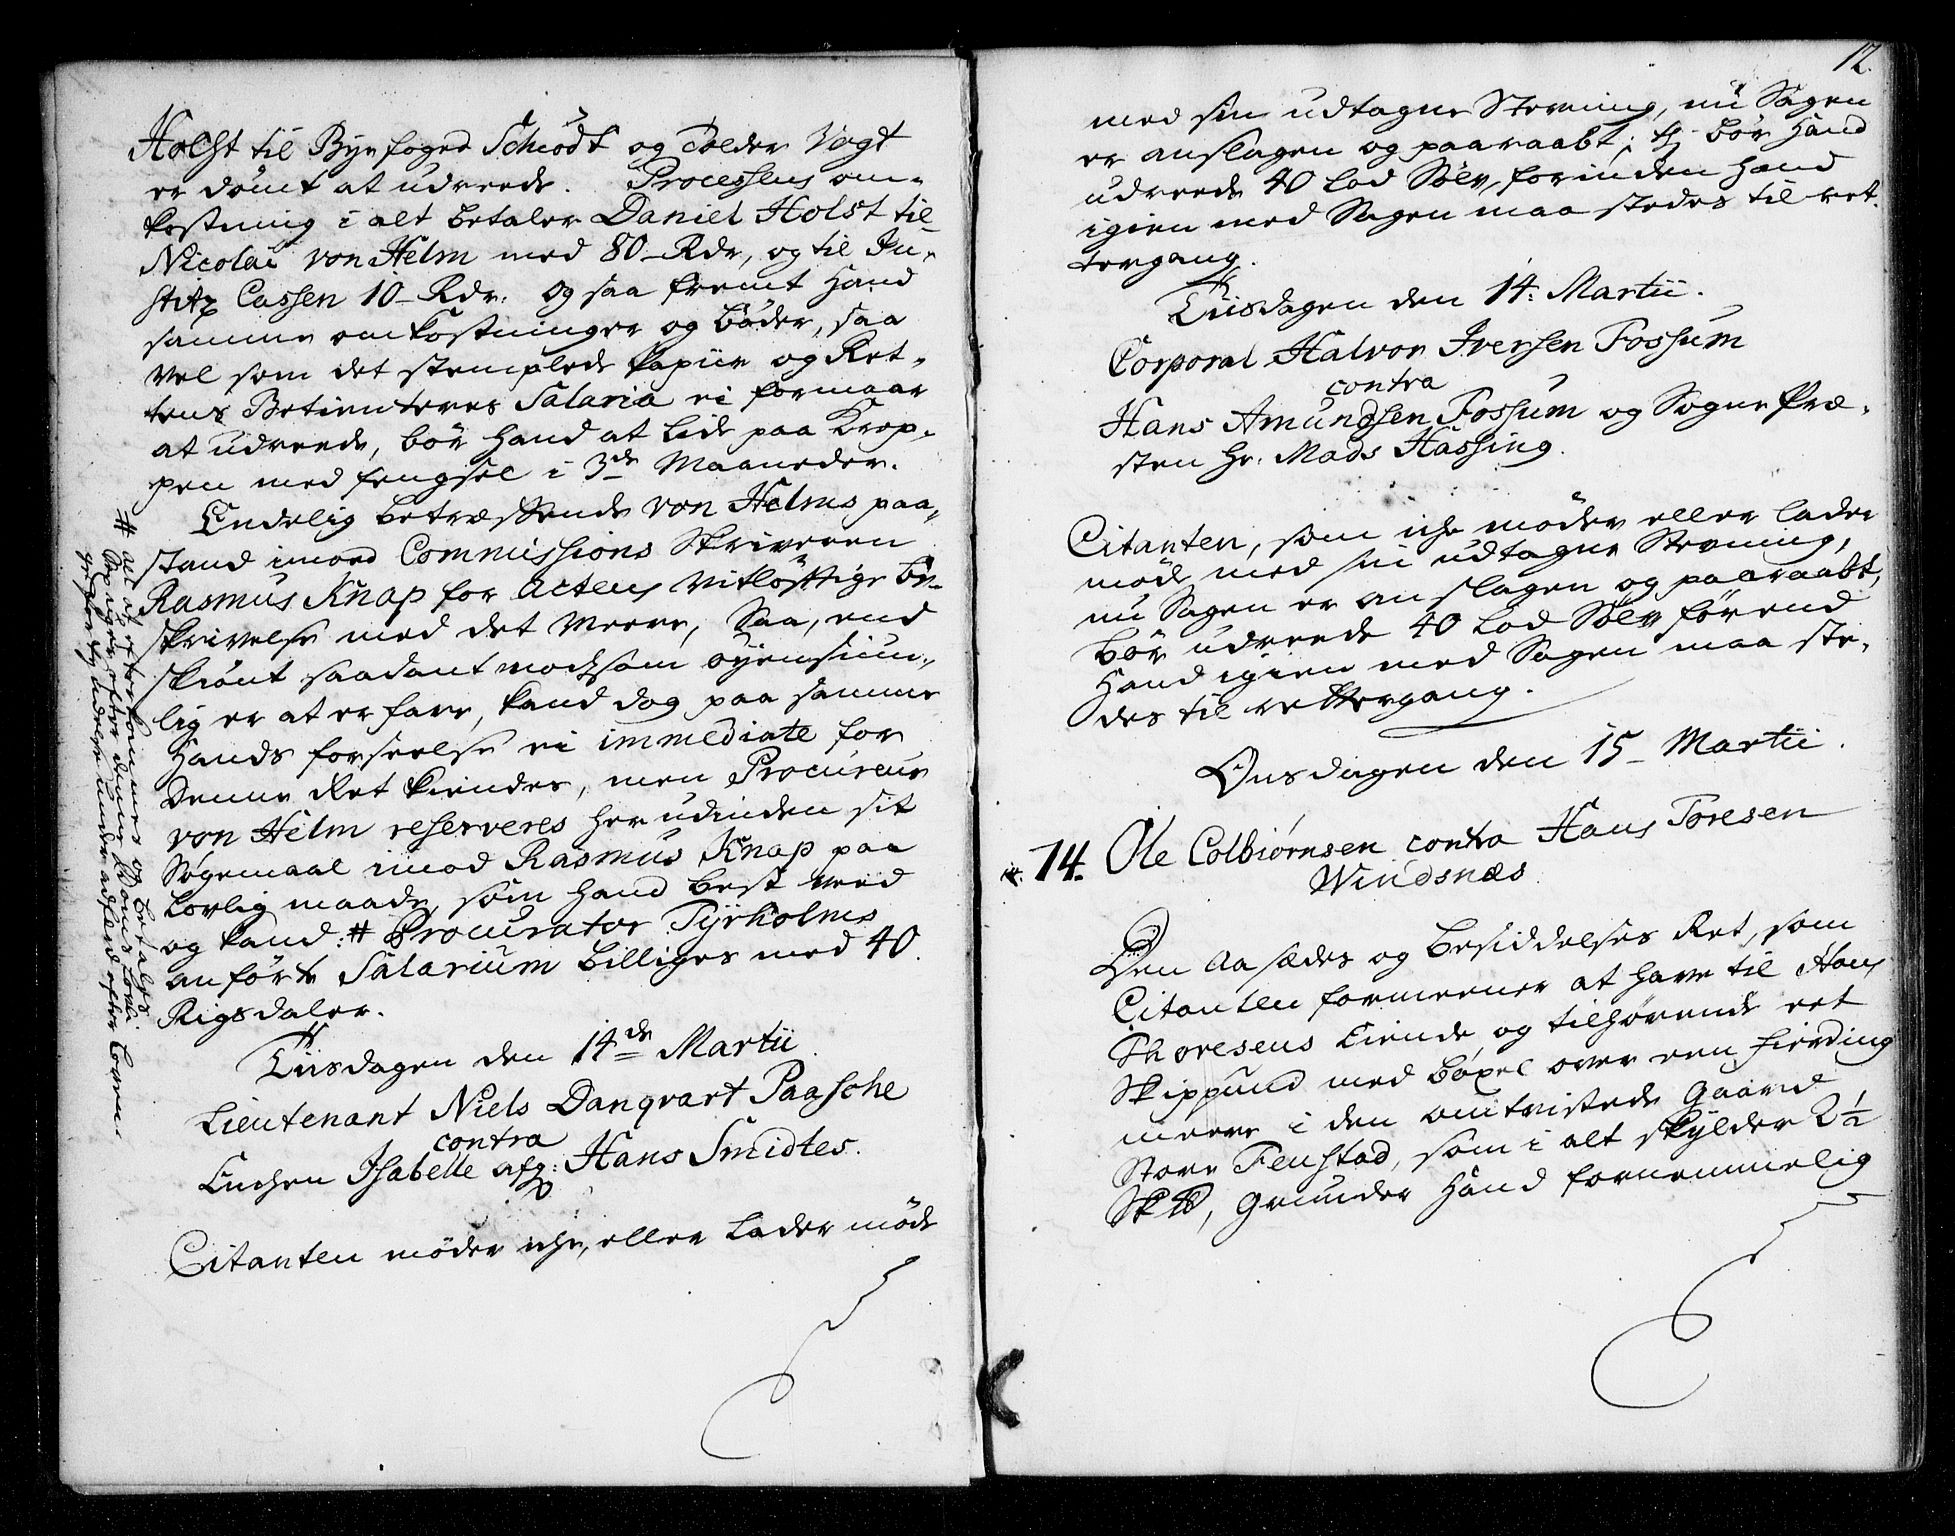 Holst til Byefoged Schiödt og Tolder Vogt
er dömt at udreede. Processens om-
kostning i alt betaler Daniel Holst til
Nicolai von Helm med 80 Rdr, og til Ju-
stitz Cassen 10 Rdr: og saa fremt hand
samme omkostninger og böder, saa
vel som det stemplede Papiir og Ret-
tens Betienteres Salaria ei formaar
at udreede, bör hand at lide paa Krop-
pen med fengsel i 3de Maaneder.
Endelig betræffende von Helms paa-
stand imod Commissions Skriveren
Rasmus Knap for Actens vitlöftige be-
skrivelse med det meere, Saa, end
skiönt saadant noksom öyensiun-
lig er at erfare, kand dog paa samme
hands forseelse ei immediate for
denne Ret kiendes, men Procureur
von Helm reserveres her udinden sit
Søgemaal imod Rasmus Knap paa
lovlig maade, som hand best veed
og kand: # Procurator Tyrholms
anförte Salarium billiges med 40.
Rigsdaler.
# alt at efterkommes og betales
efter denne doms lovlig
under adferd efter loven
Tiisdagen den 14de Martii
Lieutenant Niels Danqvart Paasche
contra
Enchen Isabelle afg: Hans Smidtes.
Citanten möder iche, eller lader möde
12.
med sin udtagne Stevning, nu Sagen
er anslagen og paaraabt; thj bör hand
udreede 40 Lod Sölv, forinden hand
igien med Sagen maa stedes til ret-
tergang.
Tiisdagen den 14: Martii.
Corporal Halvor Iversen Fossum
contra
Hans Amundsen Fossum og Sogne Præ-
sten Hr. Mads Hassing.
Citanten, som iche möder eller lader
möde med sin udtagne Stevning,
nu Sagen er anslagen og paaraabt,
bör udreede 40 Lod Sölv förend
hand igien med Sagen maa ste-
des til rettergang.
Onsdagen den 15 Martii.
14. Ole Colbiørnsen contra Hans Toresen
Windsnæs
Den Aasædes og besiddelses Ret, som
Citanten formeener at have til Hans
Thoresens Eiende og tilhørende eet
Skippund med böxel over een fierding
meere i den omtvistede gaard
Store Fenstad, som i alt skylder 2½
Sk℔, grunder hand fornemmelig